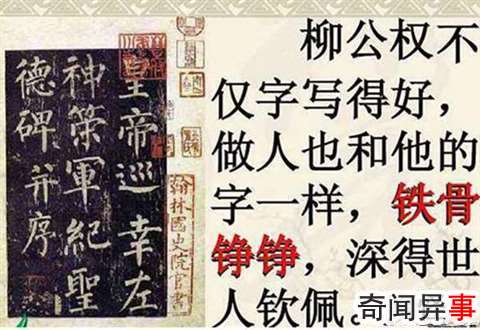 皇帝巡幸左
神策軍紀聖
德碑并序
翰林國史院官書
柳公权不
仅字写得好，
做人也和他的
字一样，铁骨
铮铮，深得世
人钦佩。
奇闻异事